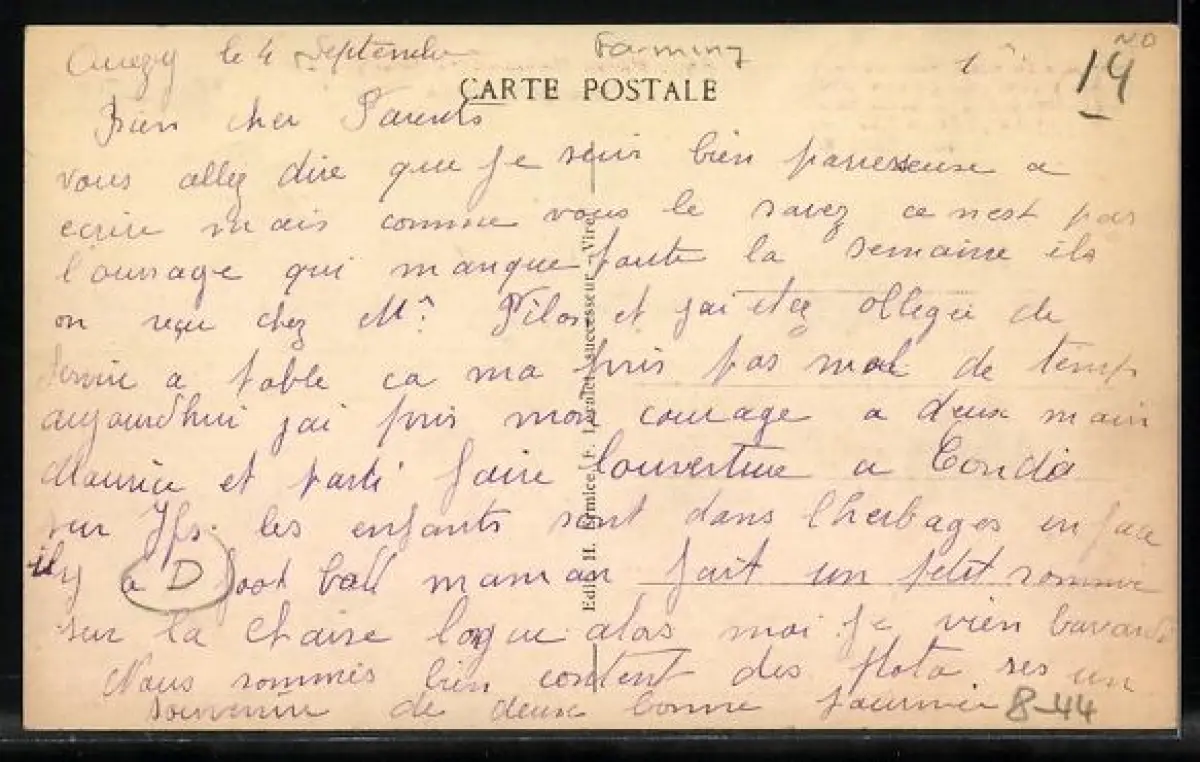 le 4 Septembre Farming 1 14 NO
CARTE POSTALE
Bien cher Parents
vous allez dire que je suis bien paresseuse a
ecrire mais comme vous le savez ce nest pas
l'ouvrage qui manque toute la semaine ils
on reçu chez Mr et jai etée obligée de
servir a table ca ma pris pas mal de temps
aujourd'hui jai pris mon courage a deux main
Maurice et parti faire l'ouverture a Condé
sur Ifs. les enfants sont dans l'herbages en face
il y a D foot ball maman fait un petit somme
sur la chaise longue alors moi je vien bavard
Nous sommes bien content des photo ses un
souvenir de deux bonne journée 8-44
Edit. H. Ermice, F. successeur - Vire